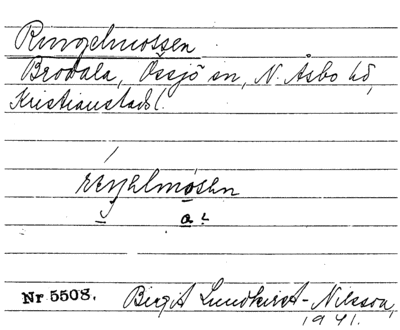 Ringelmossen
Brodala, Össjö sn, N. Åsbo hd,
Kristianstads l.
reŋəlmosən
a
Nr 5508. Birgit Lundkvist-Nilsson,
1941.